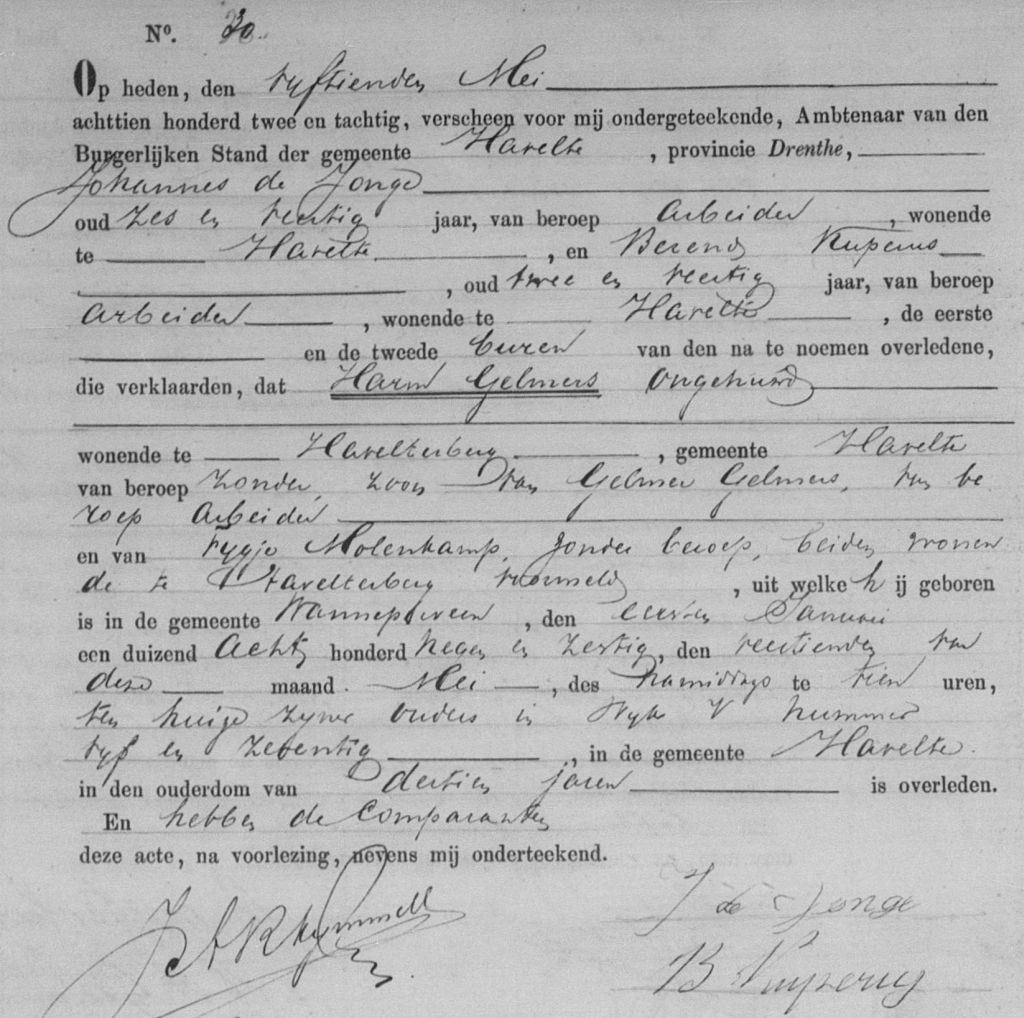 No. 30.
Op heden, den vyftienden Mei
achttien honderd twee en tachtig, verscheen voor mij ondergeteekende, Ambtenaar van den
Burgerlijken Stand der gemeente Havelte, provincie Drenthe,
Johannes de Jonge
oud zes en veertig jaar, van beroep Arbeider, wonende
te Havelte, en Berend Kuperus
, oud twee en veertig jaar, van beroep
Arbeider, wonende te Havelte, de eerste
en de tweede buren van den na te noemen overledene,
die verklaarden, dat Harm Gelmers ongehuwd
wonende te Havelterberg, gemeente Havelte
van beroep zonder, zoon van Gelmer Gelmers, van be
roep Arbeider
en van Fygje Molenkamp, zonder beroep, beiden wonen
de te Havelterberg voormeld, uit welke hij geboren
is in de gemeente Wanneperveen, den eersten Januari
een duizend Acht honderd negen en zestig, den veertienden van
deze maand Mei, des namiddags te tien uren,
ten huize zyner ouders in Wyk V nummer
vyf en zeventig, in de gemeente Havelte.
in den ouderdom van dertien jaren is overleden.
En hebben de Comparanten
deze acte, na voorlezing, nevens mij onderteekend.
J de Jonge
B Kuperus